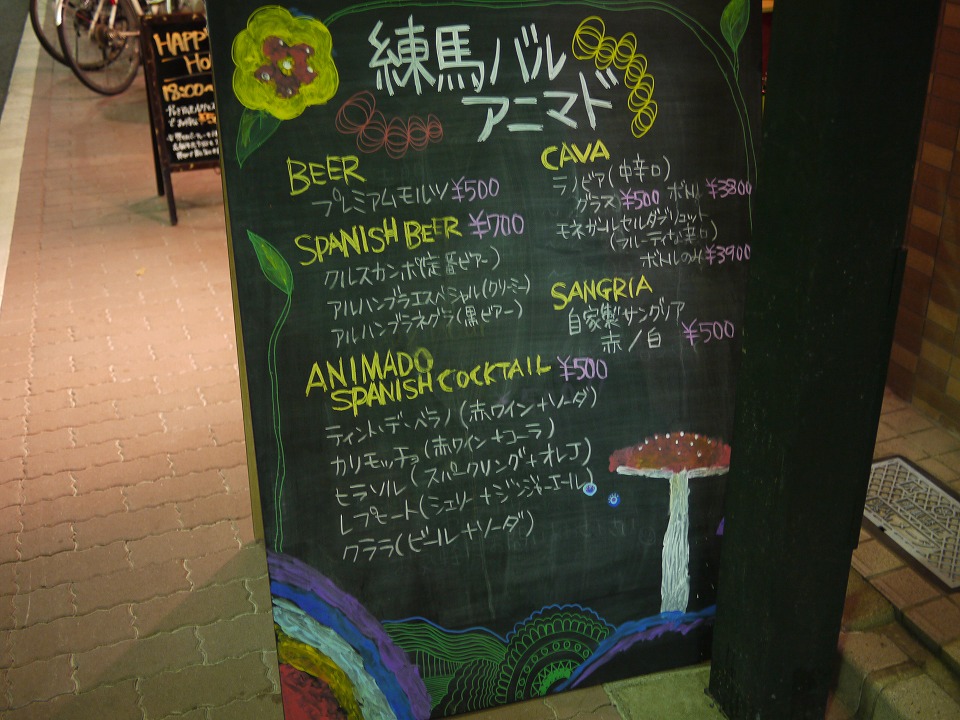 練馬バル
アニマド
BEER
プレミアムモルツ ¥500
SPANISH BEER ¥700
クルスカンポ(定番ビアー)
アルハンブラエスペシャル(クリーミー)
アルハンブラネグラ(黒ビアー)
ANIMADO
SPANISH COCKTAIL ¥500
ティント・デ・ベラノ(赤ワイン+ソーダ)
カリモッチョ(赤ワイン+コーラ)
ヒラソル(スパークリング+オレJ)
レプモート(シェリー+ジンジャーエール)
クララ(ビール+ソーダ)
CAVA
ラノビア(中辛口)
グラス ¥500 ボトル ¥3800
モネガールセルダブリュット
(フルーティな辛口)
ボトルのみ ¥3900
SANGRIA
自家製サングリア
赤/白 ¥500
HAPPY
HO
18:00~